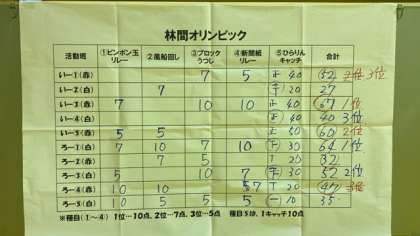 林間オリンピック
活動班 ①ピンポン玉リレー ②風船回し ③ブロックうつし ④新聞紙リレー ⑤ひらりんキャッチ 合計
い-1(赤) 7 5 正 40 52 3位
い-2(白) 7 20 27
い-3(赤) 7 10 10 正 40 67 1位
い-4(白) 正 40 40 3位
い-5(赤) 5 5 正 50 60 2位
ろ-1(白) 7 10 7 10 下 30 64 1位
ろ-2(赤) 7 5 T 20 32
ろ-3(白) 5 10 7 下 30 52 2位
ろ-4(赤) 10 10 7 T 20 47
ろ-5(白) 10 5 5 5 一 10 35
※種目(①~④) 1位…10点、2位…7点、3位…5点 種目⑤は、1キャッチ10点